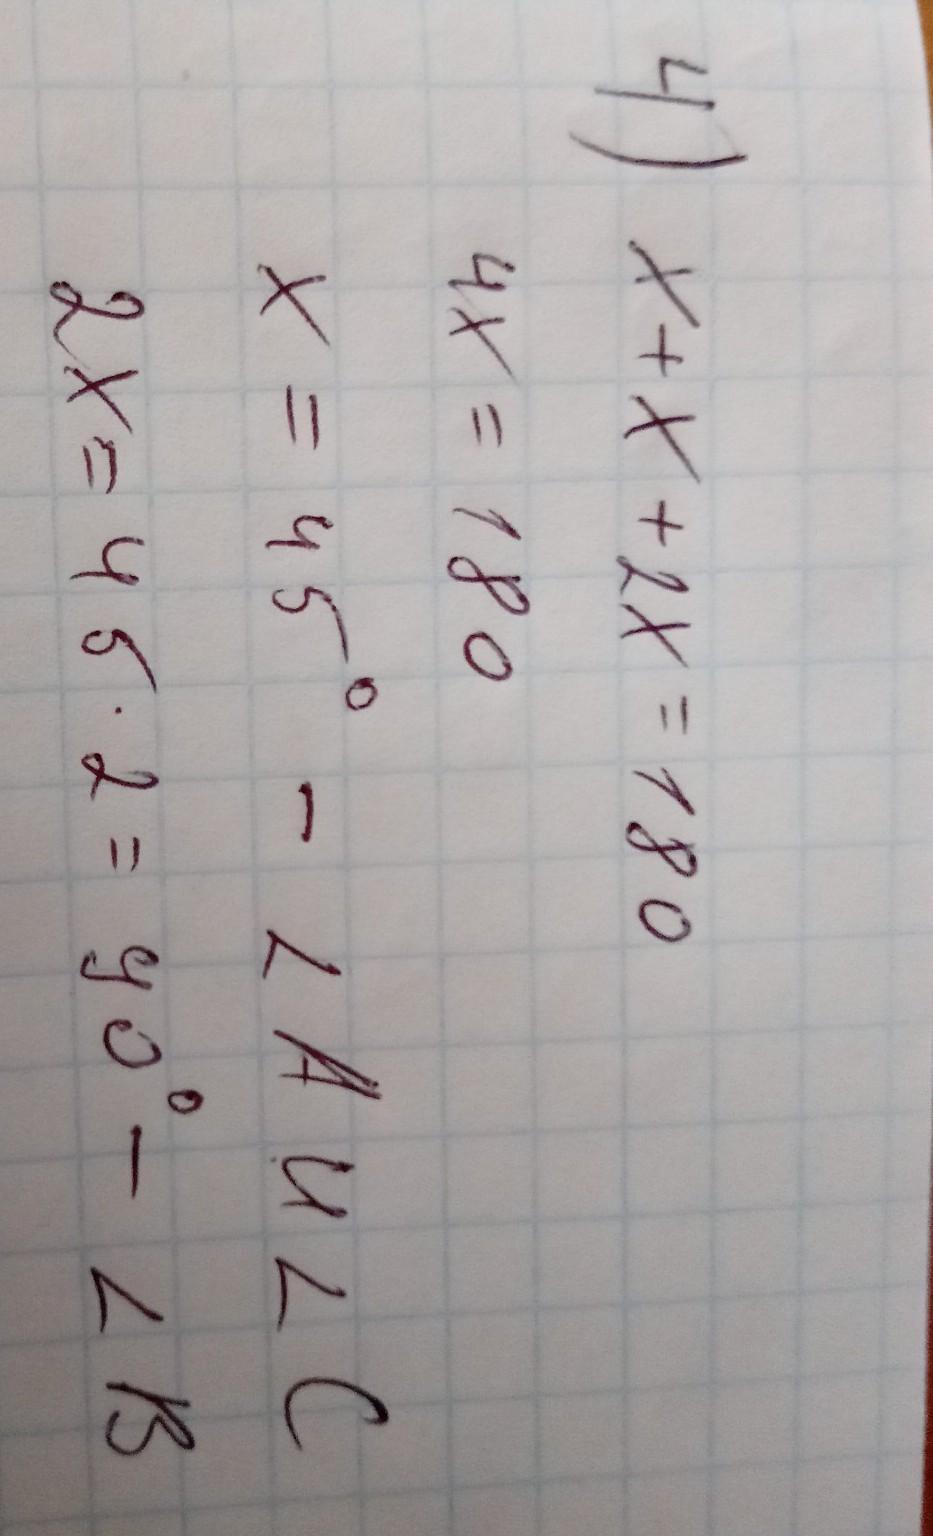 4) x+x+2x=180
4x=180
x=45° - ∠A и ∠C
2x=45·2=90° - ∠B